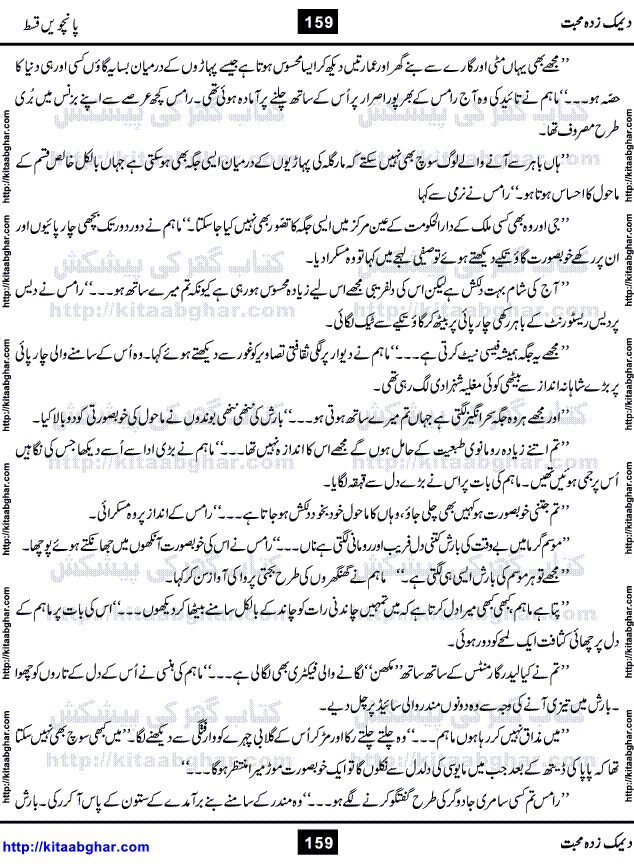 دیمک زدہ محبت 159 پانچویں قسط
’’مجھے بھی یہاں مٹی اور گارے سے بنے گھر اور عمارتیں دیکھ کر ایسا محسوس ہوتا ہے جیسے پہاڑوں کے درمیان بسا یہ گاؤں کسی اور ہی دنیا کا
حصّہ ہو۔۔۔‘‘ ماہم نے تائید کی وہ آج رامس کے بھرپور اصرار پر اُس کے ساتھ چلنے پر آمادہ ہوئی تھی۔ رامس کچھ عرصے سے اپنے بزنس میں بُری
طرح مصروف تھا۔
’’ہاں باہر سے آنے والے لوگ سوچ بھی نہیں سکتے کہ مارگلہ کی پہاڑیوں کے درمیان ایسی جگہ بھی ہو سکتی ہے جہاں بالکل خالص قسم کے
ماحول کا احساس ہوتا ہو۔‘‘ رامس نے نرمی سے کہا
’’جی اور وہ بھی کسی ملک کے دارالحکومت کے عین مرکز میں ایسی جگہ کا تصّور بھی نہیں کیا جا سکتا۔‘‘ ماہم نے دور دور تک بچھی چارپائیوں اور
ان پر رکھے خوبصورت گاؤ تکیے دیکھتے ہوئے توصیفی لہجے میں کہا تو وہ مسکرا دیا۔
’’آج کی شام بہت دلکش ہے لیکن اس کی دلفریبی مجھے اس لیے زیادہ محسوس ہو رہی ہے کیونکہ تم میرے ساتھ ہو۔۔۔‘‘ رامس نے دیس
پردیس ریسٹورنٹ کے باہر رکھی چارپائی پر بیٹھ کر گاؤ تکیے سے ٹیک لگائی۔
’’مجھے یہ جگہ ہمیشہ فیسی نیٹ کرتی ہے۔۔۔‘‘ ماہم نے دیوار پر لگی ثقافتی تصاویر کو غور سے دیکھتے ہوئے کہا۔ وہ اُس کے سامنے والی چارپائی
پر بڑے شاہانہ انداز سے بیٹھی کوئی مغلیہ شہزادی لگ رہی تھی۔
’’اور مجھے ہر وہ جگہ سحر انگیز لگتی ہے جہاں تم میرے ساتھ ہوتی ہو۔۔۔‘‘ بارش کی ننھی ننھی بوندوں نے ماحول کی خوبصورتی کو دوبالا کیا۔
’’تم اتنے زیادہ رومانوی طبیعت کے حامل ہوں گے مجھے اس کا اندازہ نہیں تھا۔۔۔‘‘ ماہم نے بڑی ادا سے اُسے دیکھا جس کی نگاہیں
اُس پر جمی ہوئیں تھیں۔ ماہم کی بات پر اس نے بڑے دل سے قہقہہ لگایا۔
’’تم جتنی خوبصورت ہو کہیں بھی چلی جاؤ، وہاں کا ماحول خود بخود دلکش ہو جاتا ہے۔۔۔‘‘ رامس کے انداز پر وہ مسکرائی۔
’’موسم گرما میں بے وقت کی بارش کتنی دل فریب اور رومانی لگتی ہے ناں۔۔۔‘‘ رامس نے اس کی خوبصورت آنکھوں میں جھانکتے ہوئے پوچھا۔
’’مجھے تو ہر موسم کی بارش ایسی ہی لگتی ہے۔‘‘ ماہم نے گھنگھروں کی طرح بجتی پروا کی آواز سن کر کہا۔
’’پتا ہے ماہم، کبھی کبھی میرا دل کرتا ہے کہ میں تمہیں چاندنی رات کو چاند کے بالکل سامنے بیٹھا کر دیکھوں۔۔۔‘‘ اُس کی بات پر ماہم کے
دل پر چھائی کثافت ایک لمحے کو دور ہوئی۔
’’تم نے کیا لیدر گارمنٹس کے ساتھ ساتھ ’’مکھن‘‘ لگانے والی فیکٹری بھی لگا لی ہے۔۔۔‘‘ ماہم کی ہنسی نے اُس کے دل کے تاروں کو چھوا
۔بارش میں تیزی آنے کی وجہ سے وہ دونوں مندر والی سائیڈ پر چل دیے۔
’’میں مذاق نہیں کر رہا ہوں ماہم۔۔۔‘‘ وہ چلتے چلتے رکا اور مڑ کر اُس کے گلابی چہرے کو وارفتگی سے دیکھنے لگا۔ ’’میں کبھی سوچ بھی نہیں سکتا
تھا کہ پاپا کی ڈیتھ کے بعد جب میں مایوسی کی دلدل سے نکلوں گا تو ایک خوبصورت موڑ میرا منتظر ہو گا۔۔۔‘‘
’’رامس تم کسی سامری جادوگر کی طرح گفتگو کرنے لگے ہو۔۔۔‘‘ وہ مندر کے سامنے بنے برآمدے کے ستون کے پاس آ کر رکی۔ بارش
http://kitaabghar.com 159 دیمک زدہ محبت
کتاب گھر کی پیشکش
http://kitaabghar.com